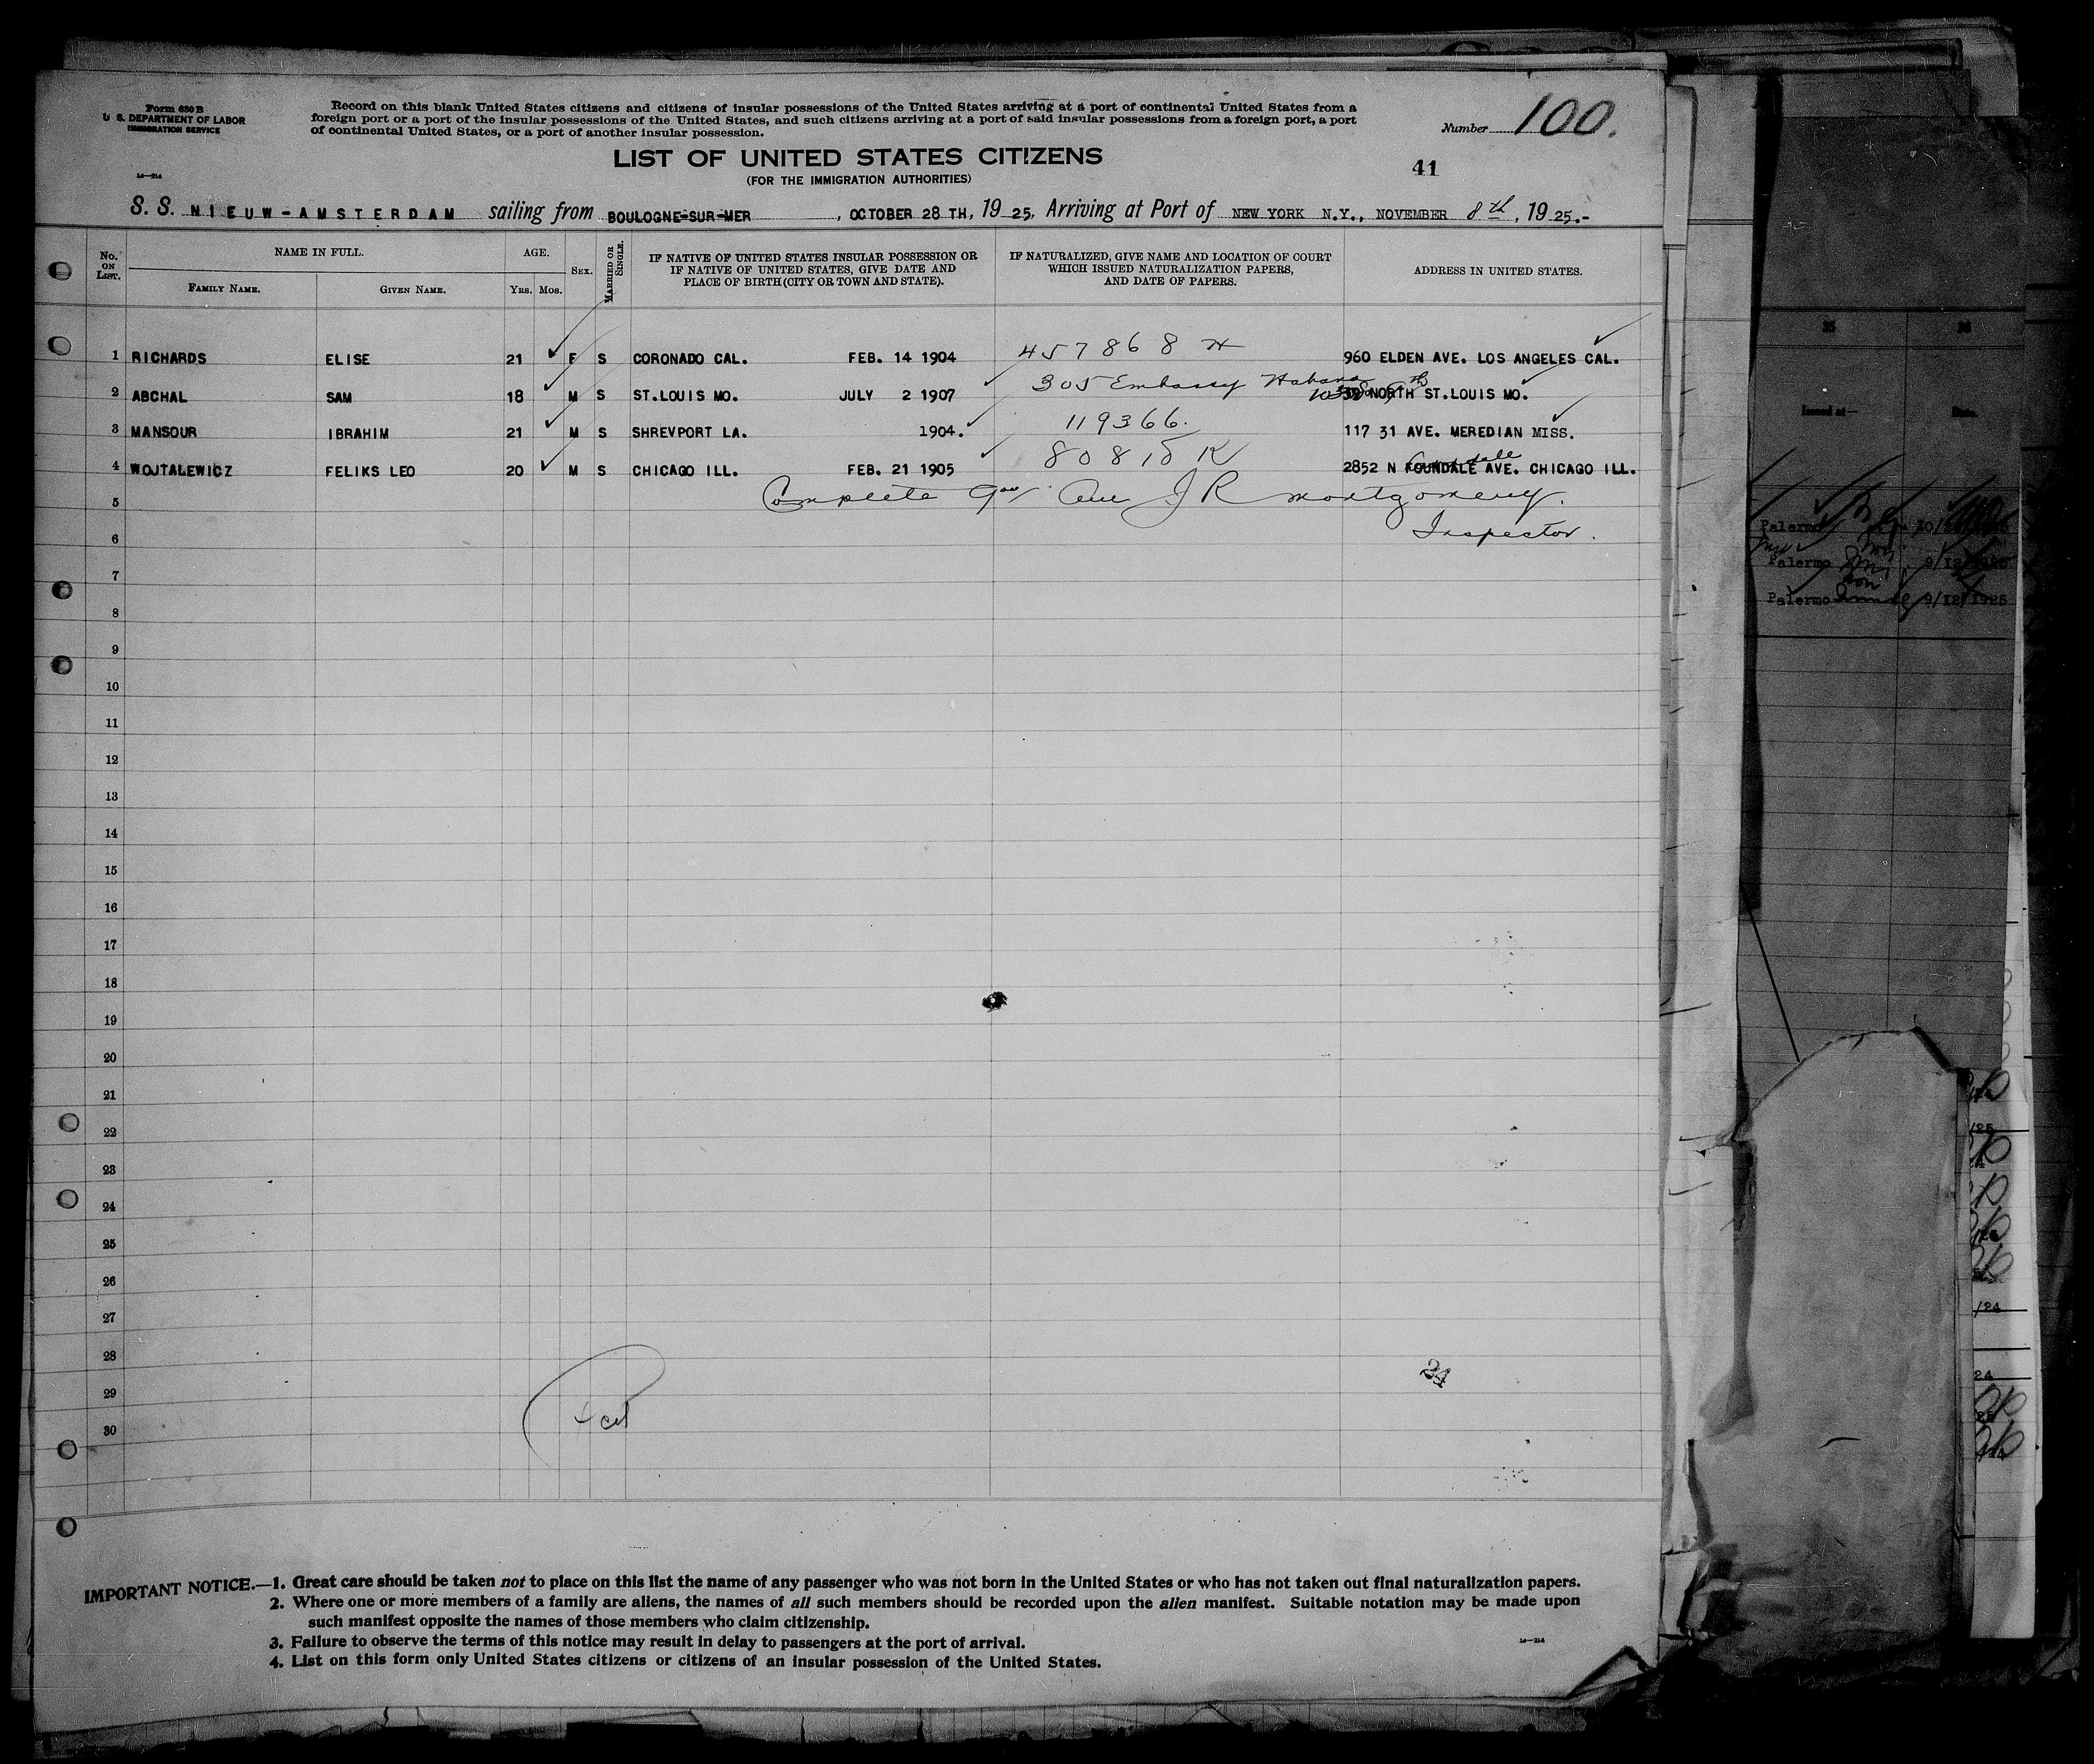 Form 630 B
U. S. DEPARTMENT OF LABOR
IMMIGRATION SERVICE
Record on this blank United States citizens and citizens of insular possessions of the United States arriving at a port of continental United States from a
foreign port or a port of the insular possessions of the United States, and such citizens arriving at a port of said insular possessions from a foreign port, a port
of continental United States, or a port of another insular possession.
Number 100.
LIST OF UNITED STATES CITIZENS
(FOR THE IMMIGRATION AUTHORITIES)
41
14—214
S. S. NIEUW-AMSTERDAM sailing from BOULOGNE-SUR-MER, OCTOBER 28 TH, 19 25, Arriving at Port of NEW YORK N.Y., NOVEMBER 8th, 19 25.-
No. ON LIST. NAME IN FULL. AGE. SEX. MARRIED OR SINGLE. IF NATIVE OF UNITED STATES INSULAR POSSESSION OR IF NATIVE OF UNITED STATES, GIVE DATE AND PLACE OF BIRTH (CITY OR TOWN AND STATE). IF NATURALIZED, GIVE NAME AND LOCATION OF COURT WHICH ISSUED NATURALIZATION PAPERS, AND DATE OF PAPERS. ADDRESS IN UNITED STATES.
FAMILY NAME. GIVEN NAME. YRS. MOS.
1 RICHARDS ELISE 21 F S CORONADO CAL. FEB. 14 1904 457868 960 ELDEN AVE. LOS ANGELES CAL.
2 ABCHAL SAM 18 M S ST.LOUIS MO. JULY 2 1907 305 Embassy Habana NORTH ST.LOUIS MO.
3 MANSOUR IBRAHIM 21 M S SHREVPORT LA. 1904. 119366. 117 31 AVE. MEREDIAN MISS.
4 WOJTALEWICZ FELIKS LEO 20 M S CHICAGO ILL. FEB. 21 1905 80818 K 2852 N FOUNDALE AVE. CHICAGO ILL.
5 Complete J R Montgomery.
6 Inspector.
7
8
9
10
11
12
13
14
15
16
17
18
19
20
21
22
23
24
25
26
27
28
29
30
24
IMPORTANT NOTICE.—1. Great care should be taken not to place on this list the name of any passenger who was not born in the United States or who has not taken out final naturalization papers.
2. Where one or more members of a family are aliens, the names of all such members should be recorded upon the alien manifest. Suitable notation may be made upon
such manifest opposite the names of those members who claim citizenship.
3. Failure to observe the terms of this notice may result in delay to passengers at the port of arrival.
4. List on this form only United States citizens or citizens of an insular possession of the United States.
14—214
Issued at— Date.
Palermo
Palermo
Palermo 9/12/1925